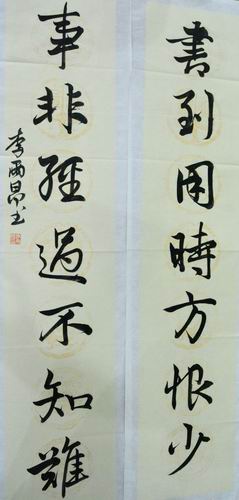 書到用時方恨少
事非經過不知難
李雨昂書